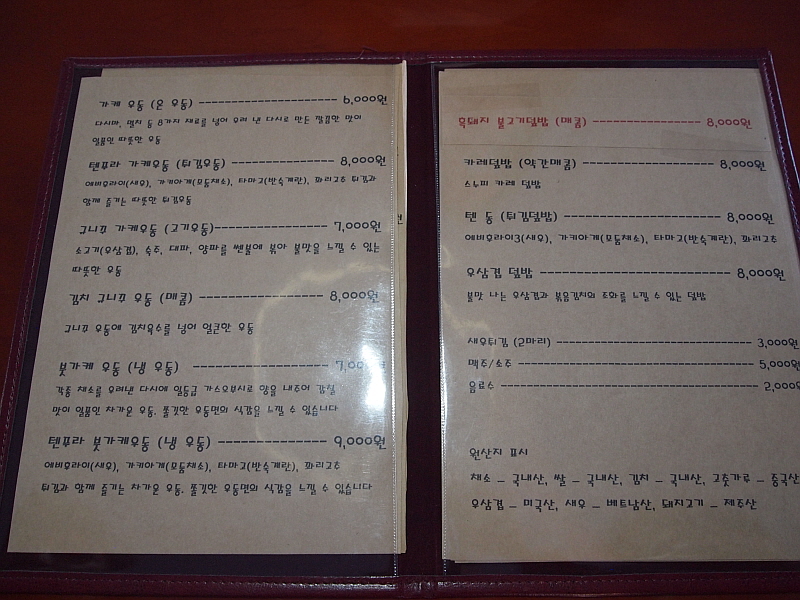 가케 우동 (온 우동) ----------------------- 6,000원
다시마, 멸치 등 8가지 재료를 넣어 우려 낸 다시로 만든 깔끔한 맛이
일품인 따뜻한 우동
텐푸라 가케우동 (튀김우동) ------------------ 8,000원
에비후라이(새우), 가키아게(모둠채소), 타마고(반숙계란), 꽈리고추 튀김과
함께 즐기는 따뜻한 튀김우동
규니꾸 가케우동 (고기우동)------------------- 7,000원
소고기(우삼겹), 숙주, 대파, 양파를 쎈불에 볶아 불맛을 느낄 수 있는
따뜻한 우동
김치 규니꾸 우동 (매콤) --------------------- 8,000원
규니꾸 우동에 김치육수를 넣어 얼큰한 우동
붓가케 우동 (냉 우동) ---------------------- 7,00
각종 채소를 우려낸 다시에 일등급 가스오부시로 향을 내주어 감칠
맛이 일품인 차가운 우동. 쫄깃한 우동면의 식감을 느낄 수 있습니다
텐푸라 붓가케우동 (냉 우동) ----------------- 9,000원
에비후라이(새우), 가키아게(모둠채소), 타마고(반숙계란), 꽈리고추
튀김과 함께 즐기는 차가운 우동. 쫄깃한 우동면의 식감을 느낄 수 있습니다
원
흑돼지 불고기덮밥 (매콤) ------------------ 8,000원
카레덮밥 (약간매콤) ----------------------- 8,000원
스누피 카레 덮밥
텐 동 (튀김덮밥) ------------------------- 8,000원
에비후라이3(새우), 가키아게(모둠채소), 타마고(반숙계란), 꽈리고추
우삼겹 덮밥 ----------------------------- 8,000원
불맛 나는 우삼겹과 볶음김치의 조화를 느낄 수 있는 덮밥
새우튀김 (2마리) -------------------------- 3,000원
맥주/소주 ------------------------------- 5,000원
음료수 ---------------------------------- 2,000
원산지 표시
채소 - 국내산, 쌀 - 국내산, 김치 - 국내산, 고춧가루 - 중국산
우삼겹 - 미국산, 새우 - 베트남산, 돼지고기 - 제주산